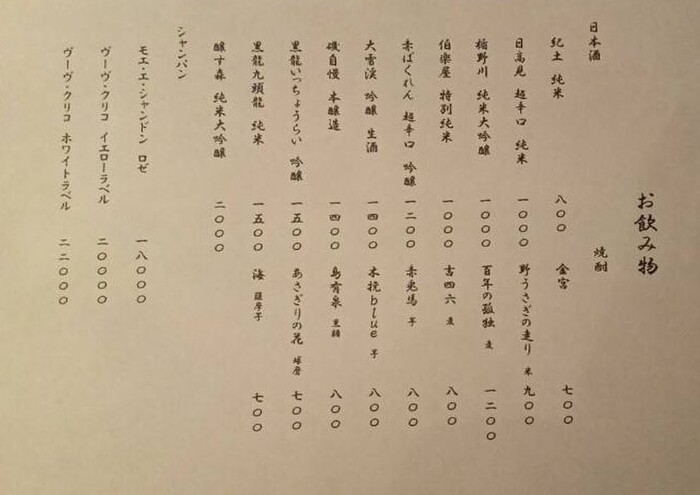 お飲み物
日本酒
紀土 純米 八〇〇
日高見 超辛口 純米 一〇〇〇
楯野川 純米大吟醸 一〇〇〇
伯楽屋 特別純米 一〇〇〇
赤ばくれん 超辛口 吟醸 一二〇〇
大雪渓 吟醸 生酒 一四〇〇
磯自慢 本醸造 一四〇〇
黒龍いっちょうらい 吟醸 一五〇〇
黒龍九頭龍 純米 一五〇〇
醸す森 純米大吟醸 二〇〇〇
焼酎
金宮 七〇〇
野うさぎの走り 米 九〇〇
百年の孤独 麦 一二〇〇
吉四六 麦 八〇〇
赤兎馬 芋 八〇〇
木挽blue 芋 八〇〇
島有泉 黒糖 八〇〇
あさぎりの花 球磨 七〇〇
海 薩摩芋 七〇〇
シャンパン
モエ・エ・シャンドン ロゼ 一八〇〇〇
ヴーヴ・クリコ イエローラベル 二〇〇〇〇
ヴーヴ・クリコ ホワイトラベル 二二〇〇〇